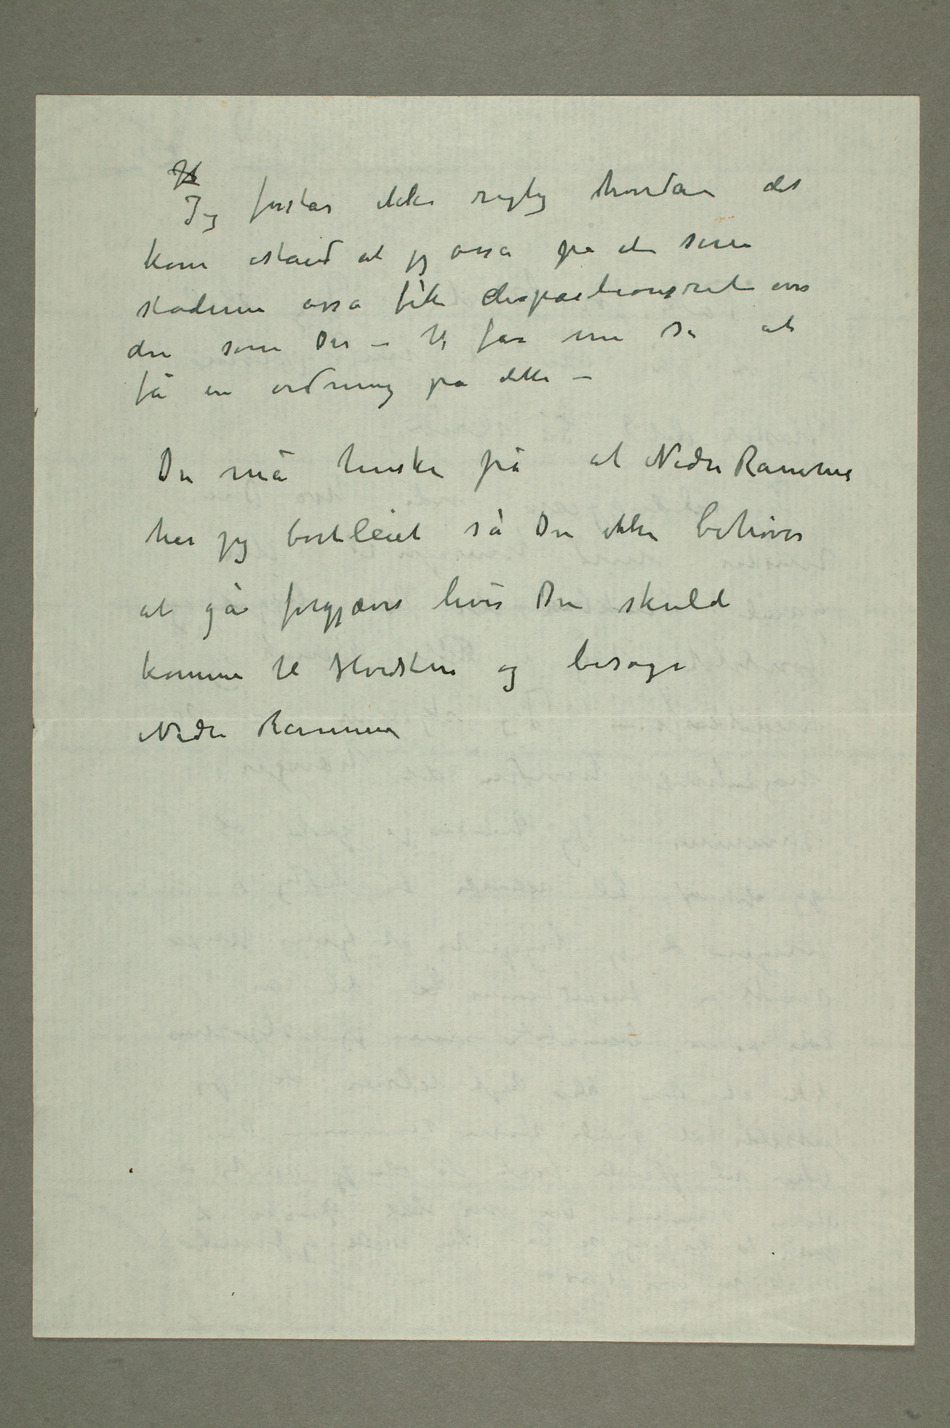 Jeg forstår ikke rigtig hvordan det
kom istand at jeg osså på de
stederne osså fik dispositionsret over
den som Du – Vi får nu se at
få en ordning på dette –
Du må huske på at Nedre Ramme
har jeg bortleiet så Du ikke behøver
at gå forgjæves hvis Du skulde
komme til Hvidsten og besøge
Nedre Ramme